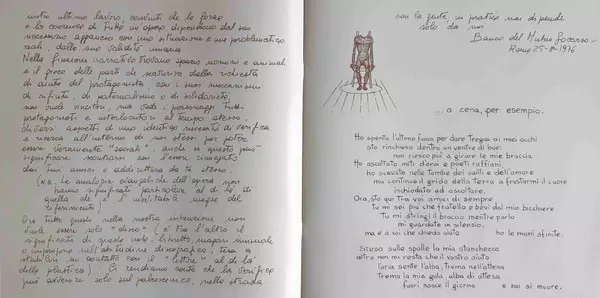 nostro ultimo lavoro, convinti che la forza
e la coerenza di tutta un'opera dipendono dal suo
necessario aggancio con una situazione e una problematica
reali, dalla sua validità umana.
Nella finzione narrativa trovano spazio uomini e animali
e il gioco delle parti che scaturisce dalla richiesta
di aiuto del protagonista con i suoi meccanismi
di rifiuto, di paternalismo o di solidarietà,
non vuole incitori, ma vede i personaggi tutti
protagonisti e interlocutori al tempo stesso,
diversi aspetti di una identica necessità di verifica
e ricerca all'interno di noi stessi per poter
essere veramente "sociali", anche se questo può
significare scontrarsi con l'essere emarginati
dai tuoi amici o addirittura da te stesso
(n.b. Le analogie evangeliche dell'opera non
hanno significati particolari al di là di
quella che è l'inevitabile usura del
riferimento).
Ora tutto questo nella nostra intenzione non
vuole essere solo "disco" (è tra l'altro il
significato di questo libretto, magari inusuale
e improprio nell'abitudine discografica, teso a
stabilire un contatto con il "lettore" al di là
della plastica) Ci rendiamo conto che la verifica
può avvenire solo sul palcoscenico, nella strada
con la gente, in pratica non dipende
solo da noi
Banco del Mutuo Soccorso -
Roma 25-8-1976
...a cena, per esempio.
Ho spento l'ultimo fuoco per dare tregua ai miei occhi
sto rinchiuso dentro un ventre di buoi
non riesco più a girare le mie braccia
Ho ascoltato miti densi e poeti ruffiani,
ho scavato nelle tombe dei santi e dell'amore
ma continua il grido della terra a frustarmi il cuore
inchiodato ad ascoltare.
Ora, sto qui tra voi amici di sempre
Tu mi sei più che fratello e bevi dal mio bicchiere
Tu mi stringi il braccio mentre parlo
mi guardate in silenzio,
ma è a voi che chiedo aiuto ho le mani sfinite.
Stesa sulle spalle la mia stanchezza
altro non mi resta che il vostro aiuto
l'aria sente l'alba, trema nell'attesa
Trema la mia gola, alba di attesa
fuori nasce il giorno e noi si muore.